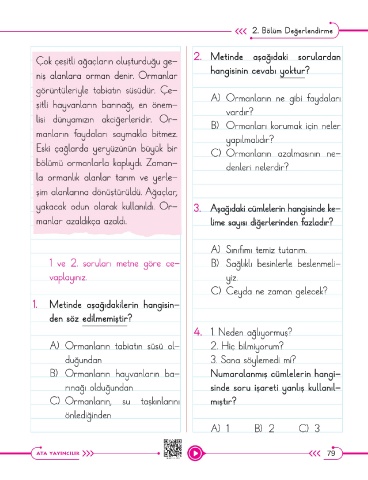 2. Bölüm Değerlendirme
Çok çeşitli ağaçların oluşturduğu ge-
niş alanlara orman denir. Ormanlar
görüntüleriyle tabiatın süsüdür. Çe-
şitli hayvanların barınağı, en önem-
lisi dünyamızın akciğerleridir. Or-
manların faydaları saymakla bitmez.
Eski çağlarda yeryüzünün büyük bir
bölümü ormanlarla kaplıydı. Zaman-
la ormanlık alanlar tarım ve yerle-
şim alanlarına dönüştürüldü. Ağaçlar,
yakacak odun olarak kullanıldı. Or-
manlar azaldıkça azaldı.
1 ve 2. soruları metne göre ce-
vaplayınız.
1. Metinde aşağıdakilerin hangisin-
den söz edilmemiştir?
A) Ormanların tabiatın süsü ol-
duğundan
B) Ormanların hayvanların ba-
rınağı olduğundan
C) Ormanların, su taşkınlarını
önlediğinden
2. Metinde aşağıdaki sorulardan
hangisinin cevabı yoktur?
A) Ormanların ne gibi faydaları
vardır?
B) Ormanları korumak için neler
yapılmalıdır?
C) Ormanların azalmasının ne-
denleri nelerdir?
3. Aşağıdaki cümlelerin hangisinde ke-
lime sayısı diğerlerinden fazladır?
A) Sınıfımı temiz tutarım.
B) Sağlıklı besinlerle beslenmeli-
yiz.
C) Ceyda ne zaman gelecek?
4. 1. Neden ağlıyormuş?
2. Hiç bilmiyorum?
3. Sana söylemedi mi?
Numaralanmış cümlelerin hangi-
sinde soru işareti yanlış kullanıl-
mıştır?
A) 1 B) 2 C) 3
ATA YAYINCILIK
79